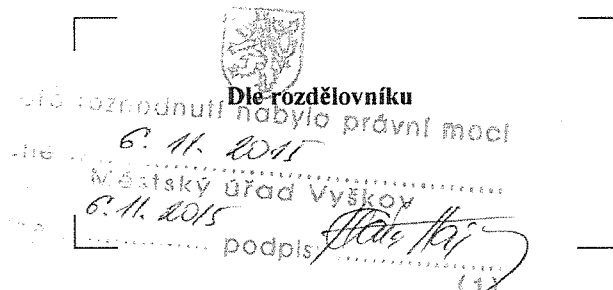 Dle rozdělovníku
rozhodnutí nabylo právní moci
dne 6. 11. 2015
Městský úřad Vyškov
6. 11. 2015 podpis
(1)